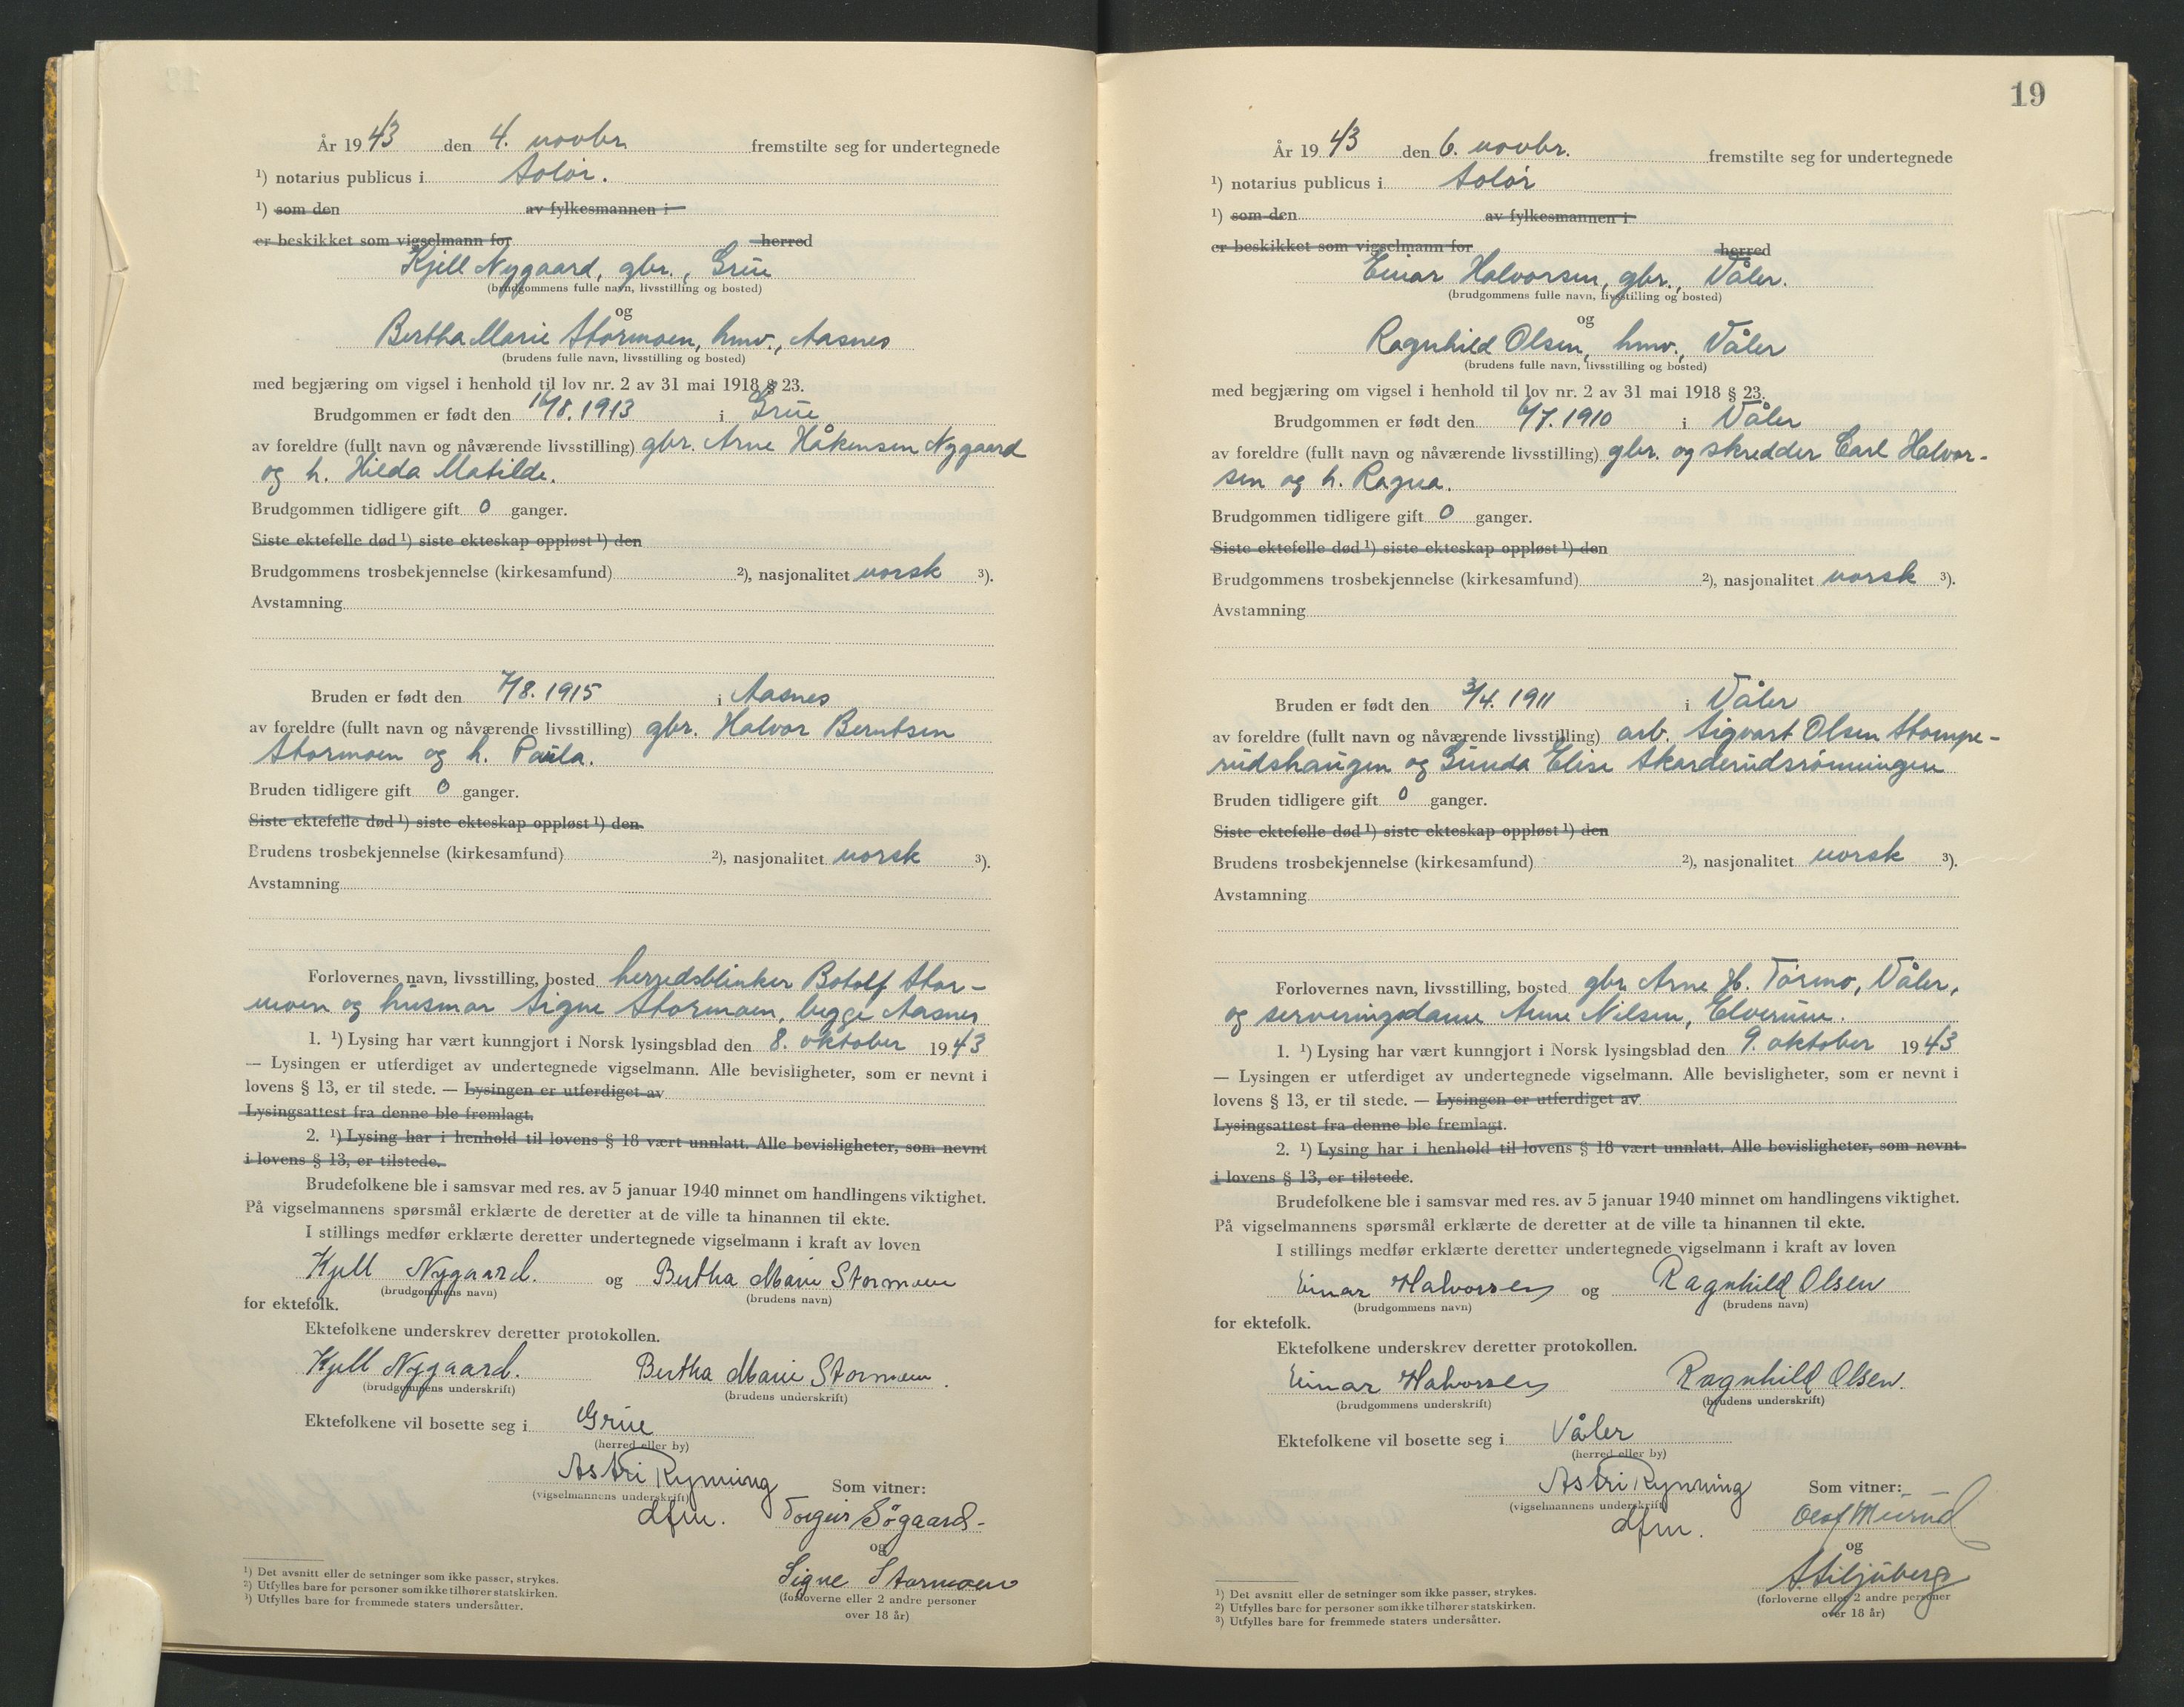 År 1943 den 4. novbr. fremstilte seg for undertegnede
¹) notarius publicus i Solør.
¹) som den av fylkesmannen i
er beskikket som vigselmann for herred
Kjell Nygaard, gbr., Grue
(brudgommens fulle navn, livsstilling og bosted)
og
Bertha Marie Stormoen, hmv., Aasnes
(brudens fulle navn, livsstilling og bosted)
med begjæring om vigsel i henhold til lov nr. 2 av 31 mai 1918 § 23.
Brudgommen er født den 16/8. 1913 i Grue
av foreldre (fullt navn og nåværende livsstilling) gbr. Arne Håkensen Nygaard
og h. Hilda Matilde.
Brudgommen tidligere gift 0 ganger.
Siste ektefelle død ¹) siste ekteskap oppløst ¹) den
Brudgommens trosbekjennelse (kirkesamfund) ²), nasjonalitet norsk ³).
Avstamning
Bruden er født den 7/8. 1915 i Aasnes
av foreldre (fullt navn og nåværende livsstilling) gbr. Halvor Berntsen
Stormoen og h. Paula.
Bruden tidligere gift 0 ganger.
Siste ektefelle død ¹) siste ekteskap oppløst ¹) den
Brudens trosbekjennelse (kirkesamfund) ²), nasjonalitet norsk ³).
Avstamning
Forlovernes navn, livsstilling, bosted herredsblinker Botolf Stor-
moen og husmor Signe Stormoen, begge Aasnes
1. ¹) Lysing har vært kunngjort i Norsk lysingsblad den 8. oktober 1943
— Lysingen er utferdiget av undertegnede vigselmann. Alle bevisligheter, som er nevnt i
lovens § 13, er til stede. — Lysingen er utferdiget av
Lysingsattest fra denne ble fremlagt.
2. ¹) Lysing har i henhold til lovens § 18 vært unnlatt. Alle bevisligheter, som nevnt
i lovens § 13, er tilstede.
Brudefolkene ble i samsvar med res. av 5 januar 1940 minnet om handlingens viktighet.
På vigselmannens spørsmål erklærte de deretter at de ville ta hinannen til ekte.
I stillings medfør erklærte deretter undertegnede vigselmann i kraft av loven
Kjell Nygaard. og Bertha Marie Stormoen
(brudgommens navn) (brudens navn)
for ektefolk.
Ektefolkene underskrev deretter protokollen.
Kjell Nygaard. Bertha Marie Stormoen.
(brudgommens underskrift) (brudens underskrift)
Ektefolkene vil bosette seg i Grue
(herred eller by)
Astri Rynning Som vitner:
(vigselmannens underskrift)
dfm. Torgeir Søgaard
og
Signe Stormoen
(forloverne eller 2 andre personer
over 18 år)
¹) Det avsnitt eller de setninger som ikke passer, strykes.
²) Utfylles bare for personer som ikke tilhører statskirken.
³) Utfylles bare for fremmede staters undersåtter.
19
År 1943 den 6. novbr. fremstilte seg for undertegnede
¹) notarius publicus i Solør
¹) som den av fylkesmannen i
er beskikket som vigselmann for herred
Einar Halvorsen, gbr., Våler.
(brudgommens fulle navn, livsstilling og bosted)
og
Ragnhild Olsen, hmv., Våler
(brudens fulle navn, livsstilling og bosted)
med begjæring om vigsel i henhold til lov nr. 2 av 31 mai 1918 § 23.
Brudgommen er født den 6/7. 1910 i Våler
av foreldre (fullt navn og nåværende livsstilling) gbr. og skredder Carl Halvor-
sen og h. Ragna.
Brudgommen tidligere gift 0 ganger.
Siste ektefelle død ¹) siste ekteskap oppløst ¹) den
Brudgommens trosbekjennelse (kirkesamfund) ²), nasjonalitet norsk ³).
Avstamning
Bruden er født den 3/4. 1911 i Våler
av foreldre (fullt navn og nåværende livsstilling) arb. Sigvart Olsen Stompe-
rudshaugen og Gunda Elise Skarderudsrønningen
Bruden tidligere gift 0 ganger.
Siste ektefelle død ¹) siste ekteskap oppløst ¹) den
Brudens trosbekjennelse (kirkesamfund) ²), nasjonalitet norsk ³).
Avstamning
Forlovernes navn, livsstilling, bosted gbr. Arne H. Tørmo, Våler,
og serveringsdame Anne Nilsen, Elverum.
1. ¹) Lysing har vært kunngjort i Norsk lysingsblad den 9. oktober 1943
— Lysingen er utferdiget av undertegnede vigselmann. Alle bevisligheter, som er nevnt i
lovens § 13, er til stede. — Lysingen er utferdiget av
Lysingsattest fra denne ble fremlagt.
2. ¹) Lysing har i henhold til lovens § 18 vært unnlatt. Alle bevisligheter, som nevnt
i lovens § 13, er tilstede.
Brudefolkene ble i samsvar med res. av 5 januar 1940 minnet om handlingens viktighet.
På vigselmannens spørsmål erklærte de deretter at de ville ta hinannen til ekte.
I stillings medfør erklærte deretter undertegnede vigselmann i kraft av loven
Einar Halvorsen og Ragnhild Olsen
(brudgommens navn) (brudens navn)
for ektefolk.
Ektefolkene underskrev deretter protokollen.
Einar Halvorsen Ragnhild Olsen.
(brudgommens underskrift) (brudens underskrift)
Ektefolkene vil bosette seg i Våler
(herred eller by)
Astri Rynning Som vitner:
(vigselmannens underskrift)
dfm. Olaf
og
(forloverne eller 2 andre personer
over 18 år)
¹) Det avsnitt eller de setninger som ikke passer, strykes.
²) Utfylles bare for personer som ikke tilhører statskirken.
³) Utfylles bare for fremmede staters undersåtter.